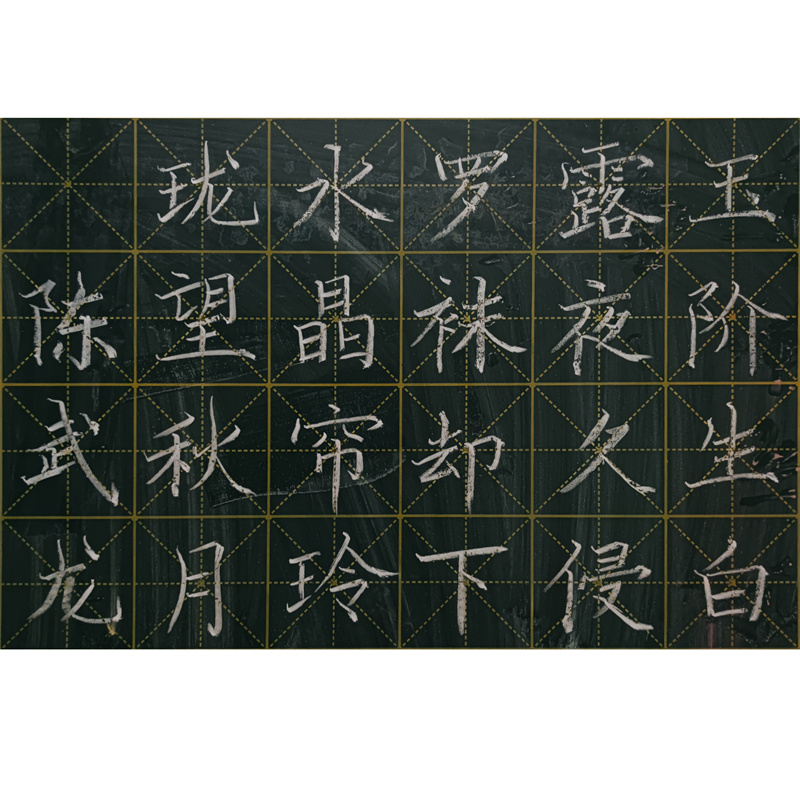 玉阶生白
露夜久侵
罗袜却下
水晶帘玲
珑望秋月
陈武龙